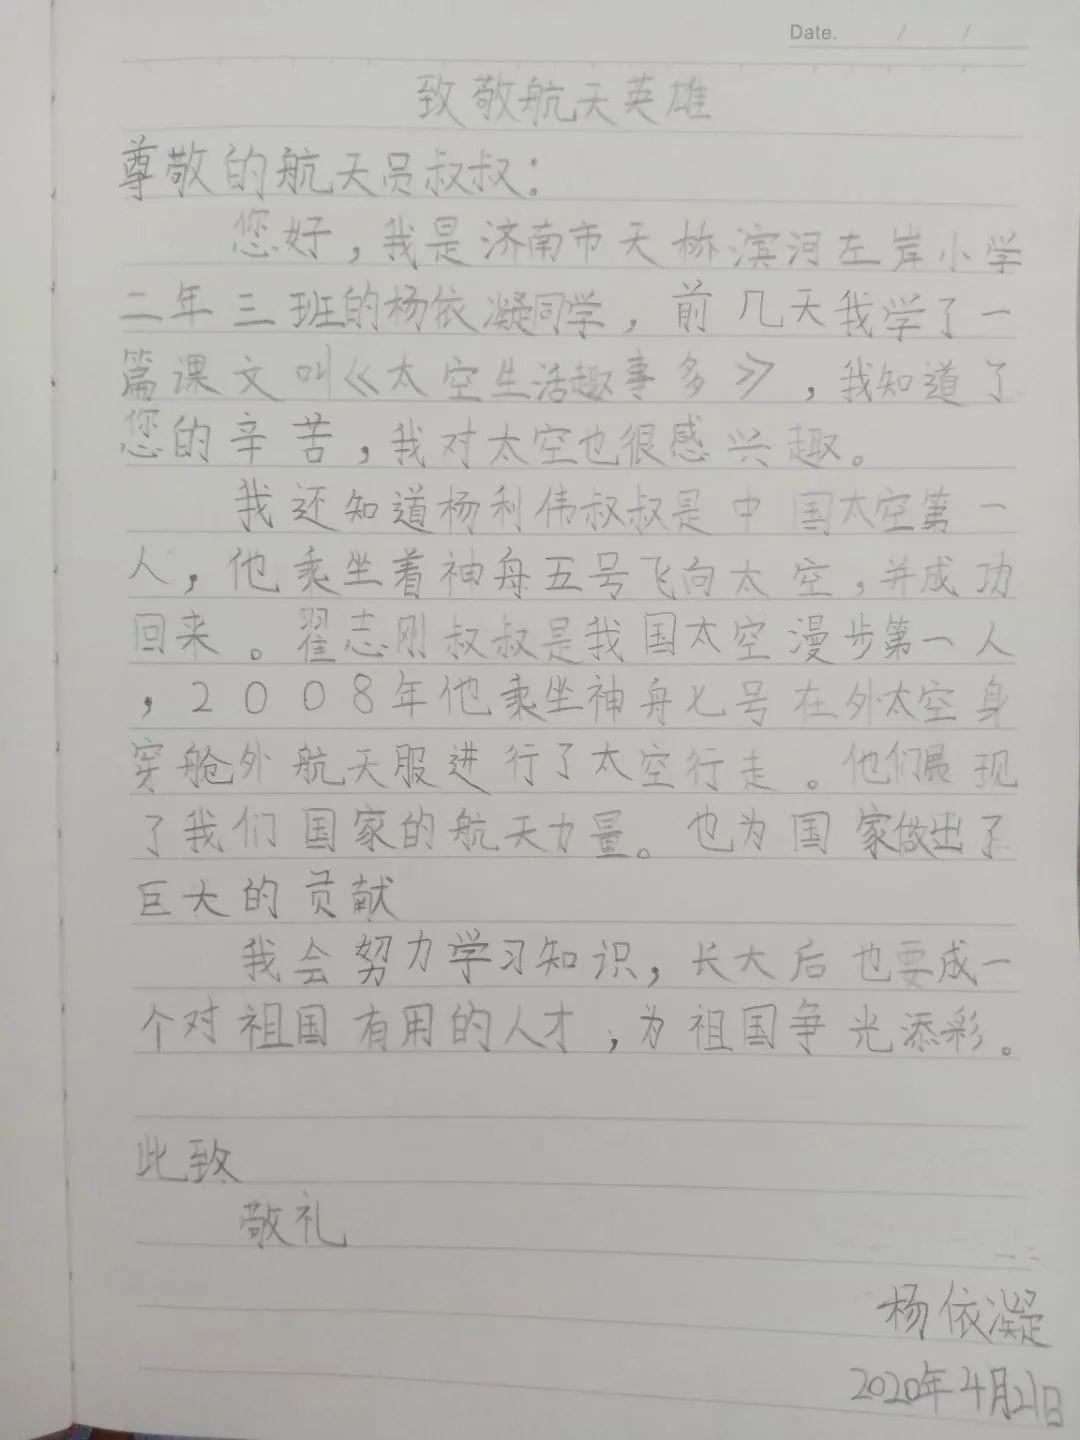 Date. / /
致敬航天英雄
尊敬的航天员叔叔：
您好，我是济南市天桥滨河左岸小学
二年三班的杨依凝同学，前几天我学了一
篇课文叫《太空生活趣事多》，我知道了
您的辛苦，我对太空也很感兴趣。
我还知道杨利伟叔叔是中国太空第一
人，他乘坐着神舟五号飞向太空，并成功
回来。翟志刚叔叔是我国太空漫步第一人
，2008年他乘坐神舟七号在外太空身
穿舱外航天服进行了太空行走。他们展现
了我们国家的航天力量。也为国家做出了
巨大的贡献
我会努力学习知识，长大后也要成一
个对祖国有用的人才，为祖国争光添彩。
此致
敬礼
杨依凝
2020年4月21日